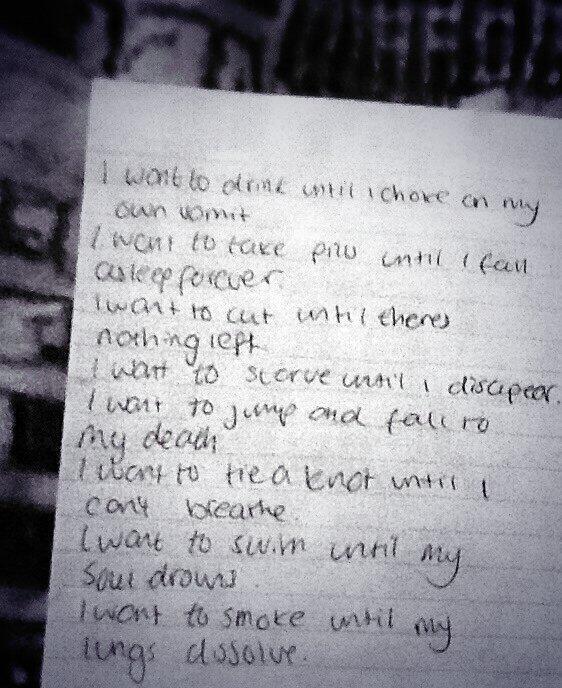 I want to drink until i choke on my
own vomit
I want to take pills until I fall
asleep forever.
I want to cut until theres
nothing left
I want to starve until i disapear.
I want to jump and fall to
my death
I want to tie a knot until I
can't breathe.
I want to swim until my
soul drowns.
I want to smoke until my
lungs dissolve.